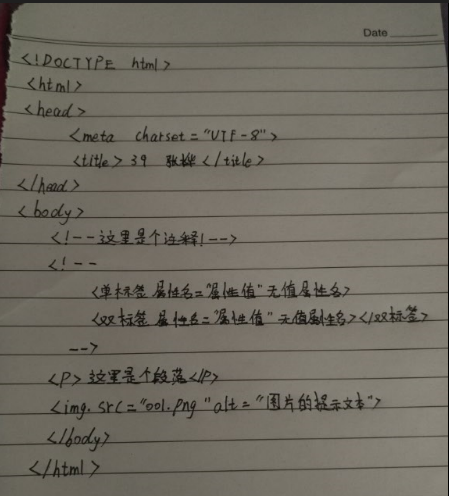 Date
<!DOCTYPE html>
<html>
<head>
<meta charset="UTF-8">
<title>39 张烨</title>
</head>
<body>
<!--这里是个注释!-->
<!--
<单标签 属性名="属性值" 无值属性名>
<双标签 属性名="属性值" 无值属性名></双标签>
-->
<P>这里是个段落</P>
<img. src="001.png" alt="图片的提示文本">
</body>
</html>